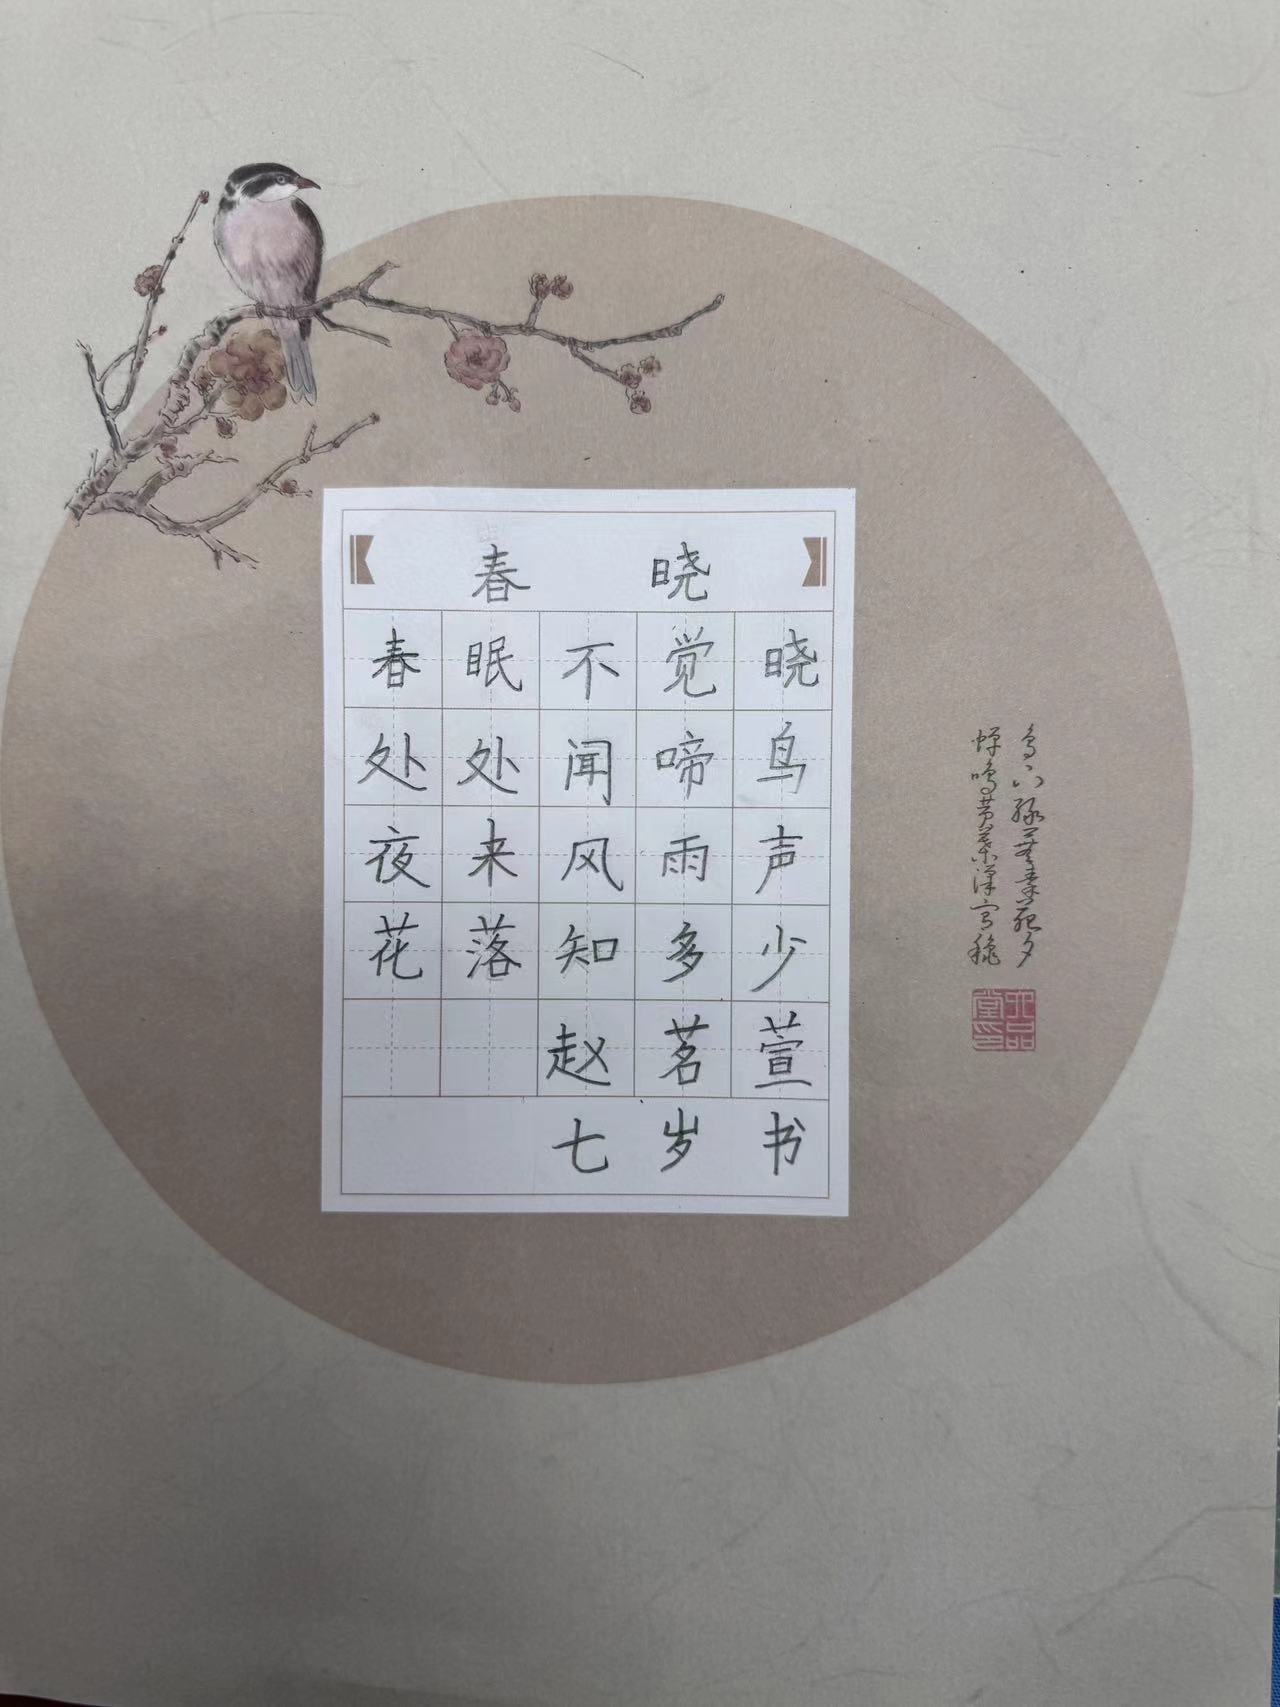 春晓
春眠不觉晓
处处闻啼鸟
夜来风雨声
花落知多少
赵茗萱
七岁书